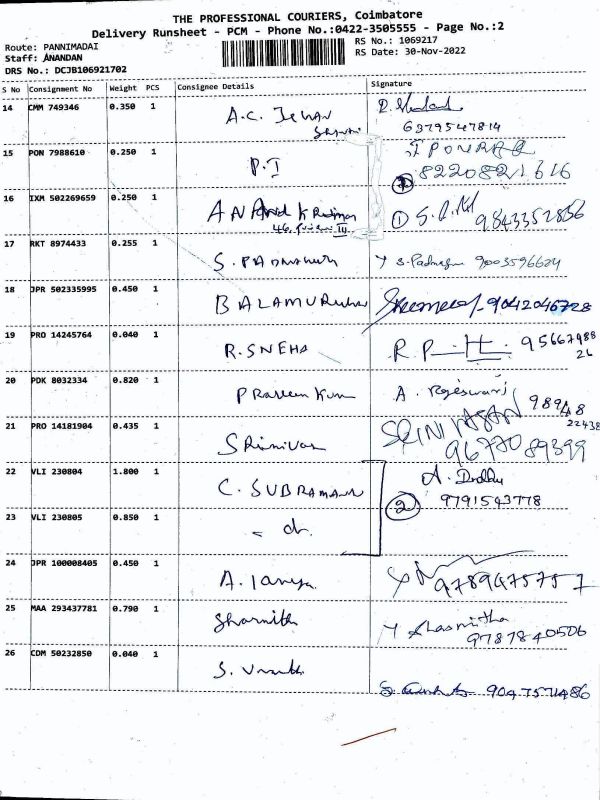 THE PROFESSIONAL COURIERS, Coimbatore
Delivery Runsheet - PCM - Phone No.:0422-3505555 - Page No.:2
Route: PANNIMADAI
RS No.: 1069217
Staff: ANANDAN
RS Date: 30-Nov-2022
DRS No.: DCJB106921702
S No Consignment No Weight PCS Consignee Details Signature
14 CMM 749346 0.350 1 A.C. Jeevan
6379547814
15 PON 7988610 0.250 1 P.I I PONRAJ
8220821616
16 IXM 502269659 0.250 1 ANAND Kumar ① 9843352856
17 RKT 8974433 0.255 1 S. PADMANABAN S. Padma 9003596624
18 JPR 502335995 0.450 1 BALAMURUGAN 9042046728
19 PRO 14245764 0.040 1 R.SNEHA R P H 95667988
26
20 PDK 8032334 0.820 1 Praveen Kumar A. Rajeswari 98948
22438
21 PRO 14181904 0.435 1 Srinivasan SRINIVASAN
9677089399
22 VLI 230804 1.800 1 C. SUBRAMANI
② 9791543778
23 VLI 230805 0.850 1 - do.
24 JPR 100008405 0.450 1 A. Taniya 9789475757
25 MAA 293437781 0.790 1 Sharmitha
9787840506
26 CDM 50232850 0.040 1 S. 9047571486